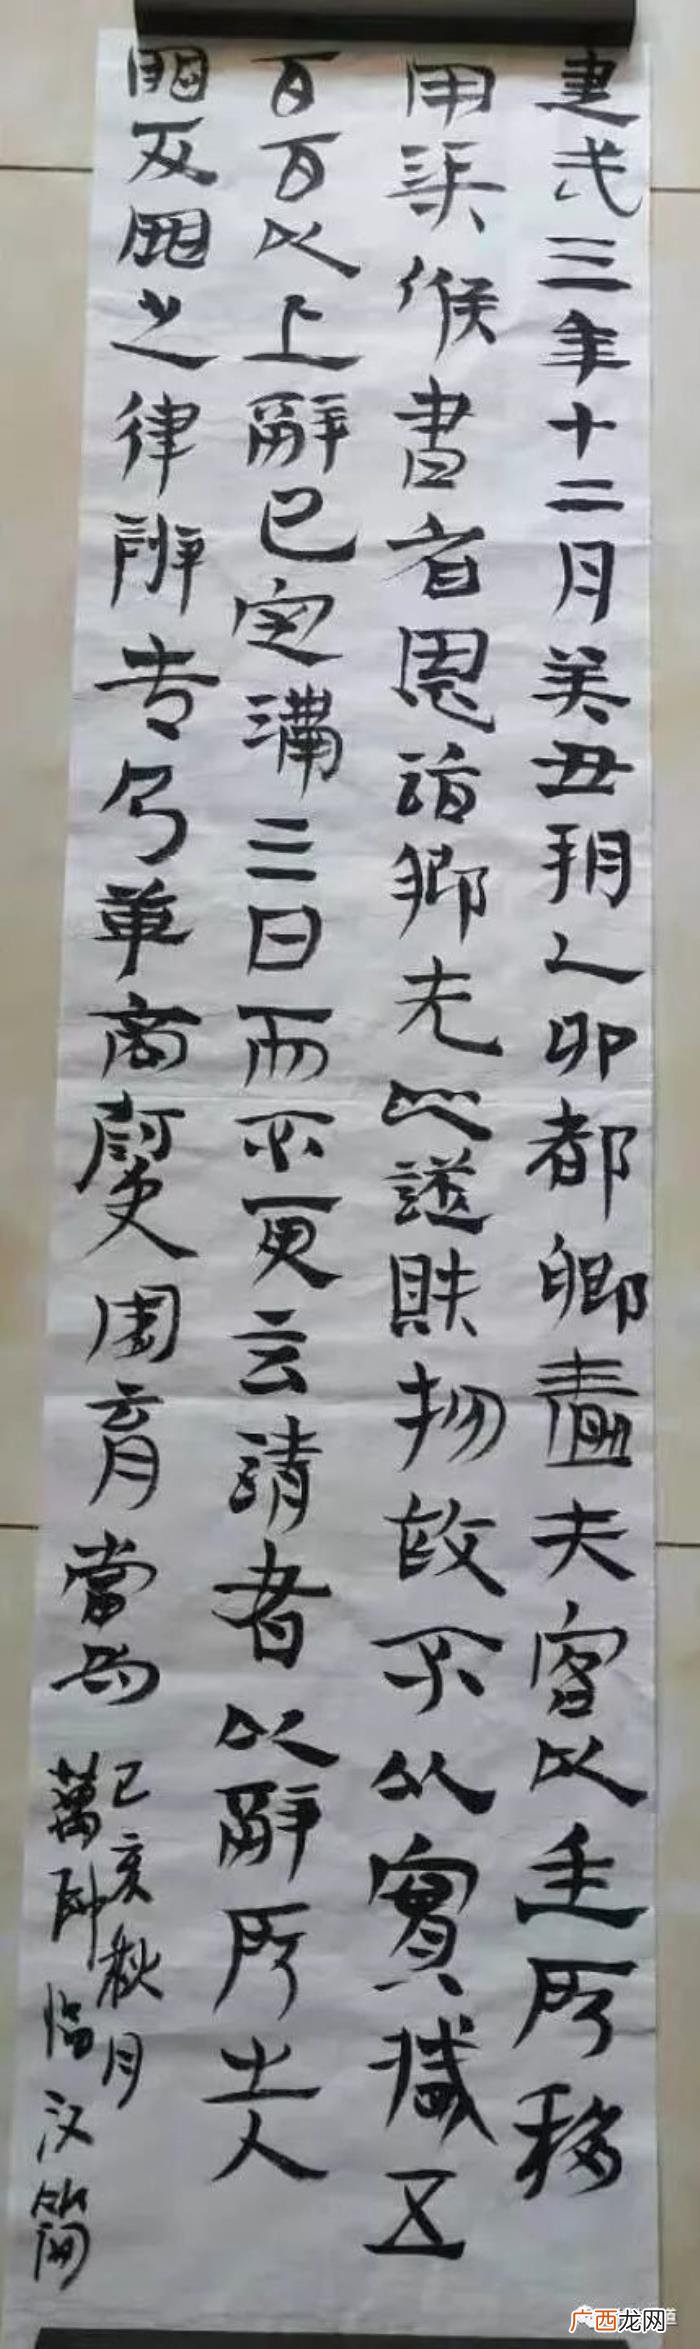 建武三年十二月癸丑朔乙卯都鄉嗇夫宮以廷所移
甲渠候書召恩詣鄉先以證財物故不以實臧五
百百以上辭已定滿三日而不更言請者以辭所出入
罪反罪之律辨告乃華商尉史周育當為
己亥秋月
萬 臨汉簡
广西龙网